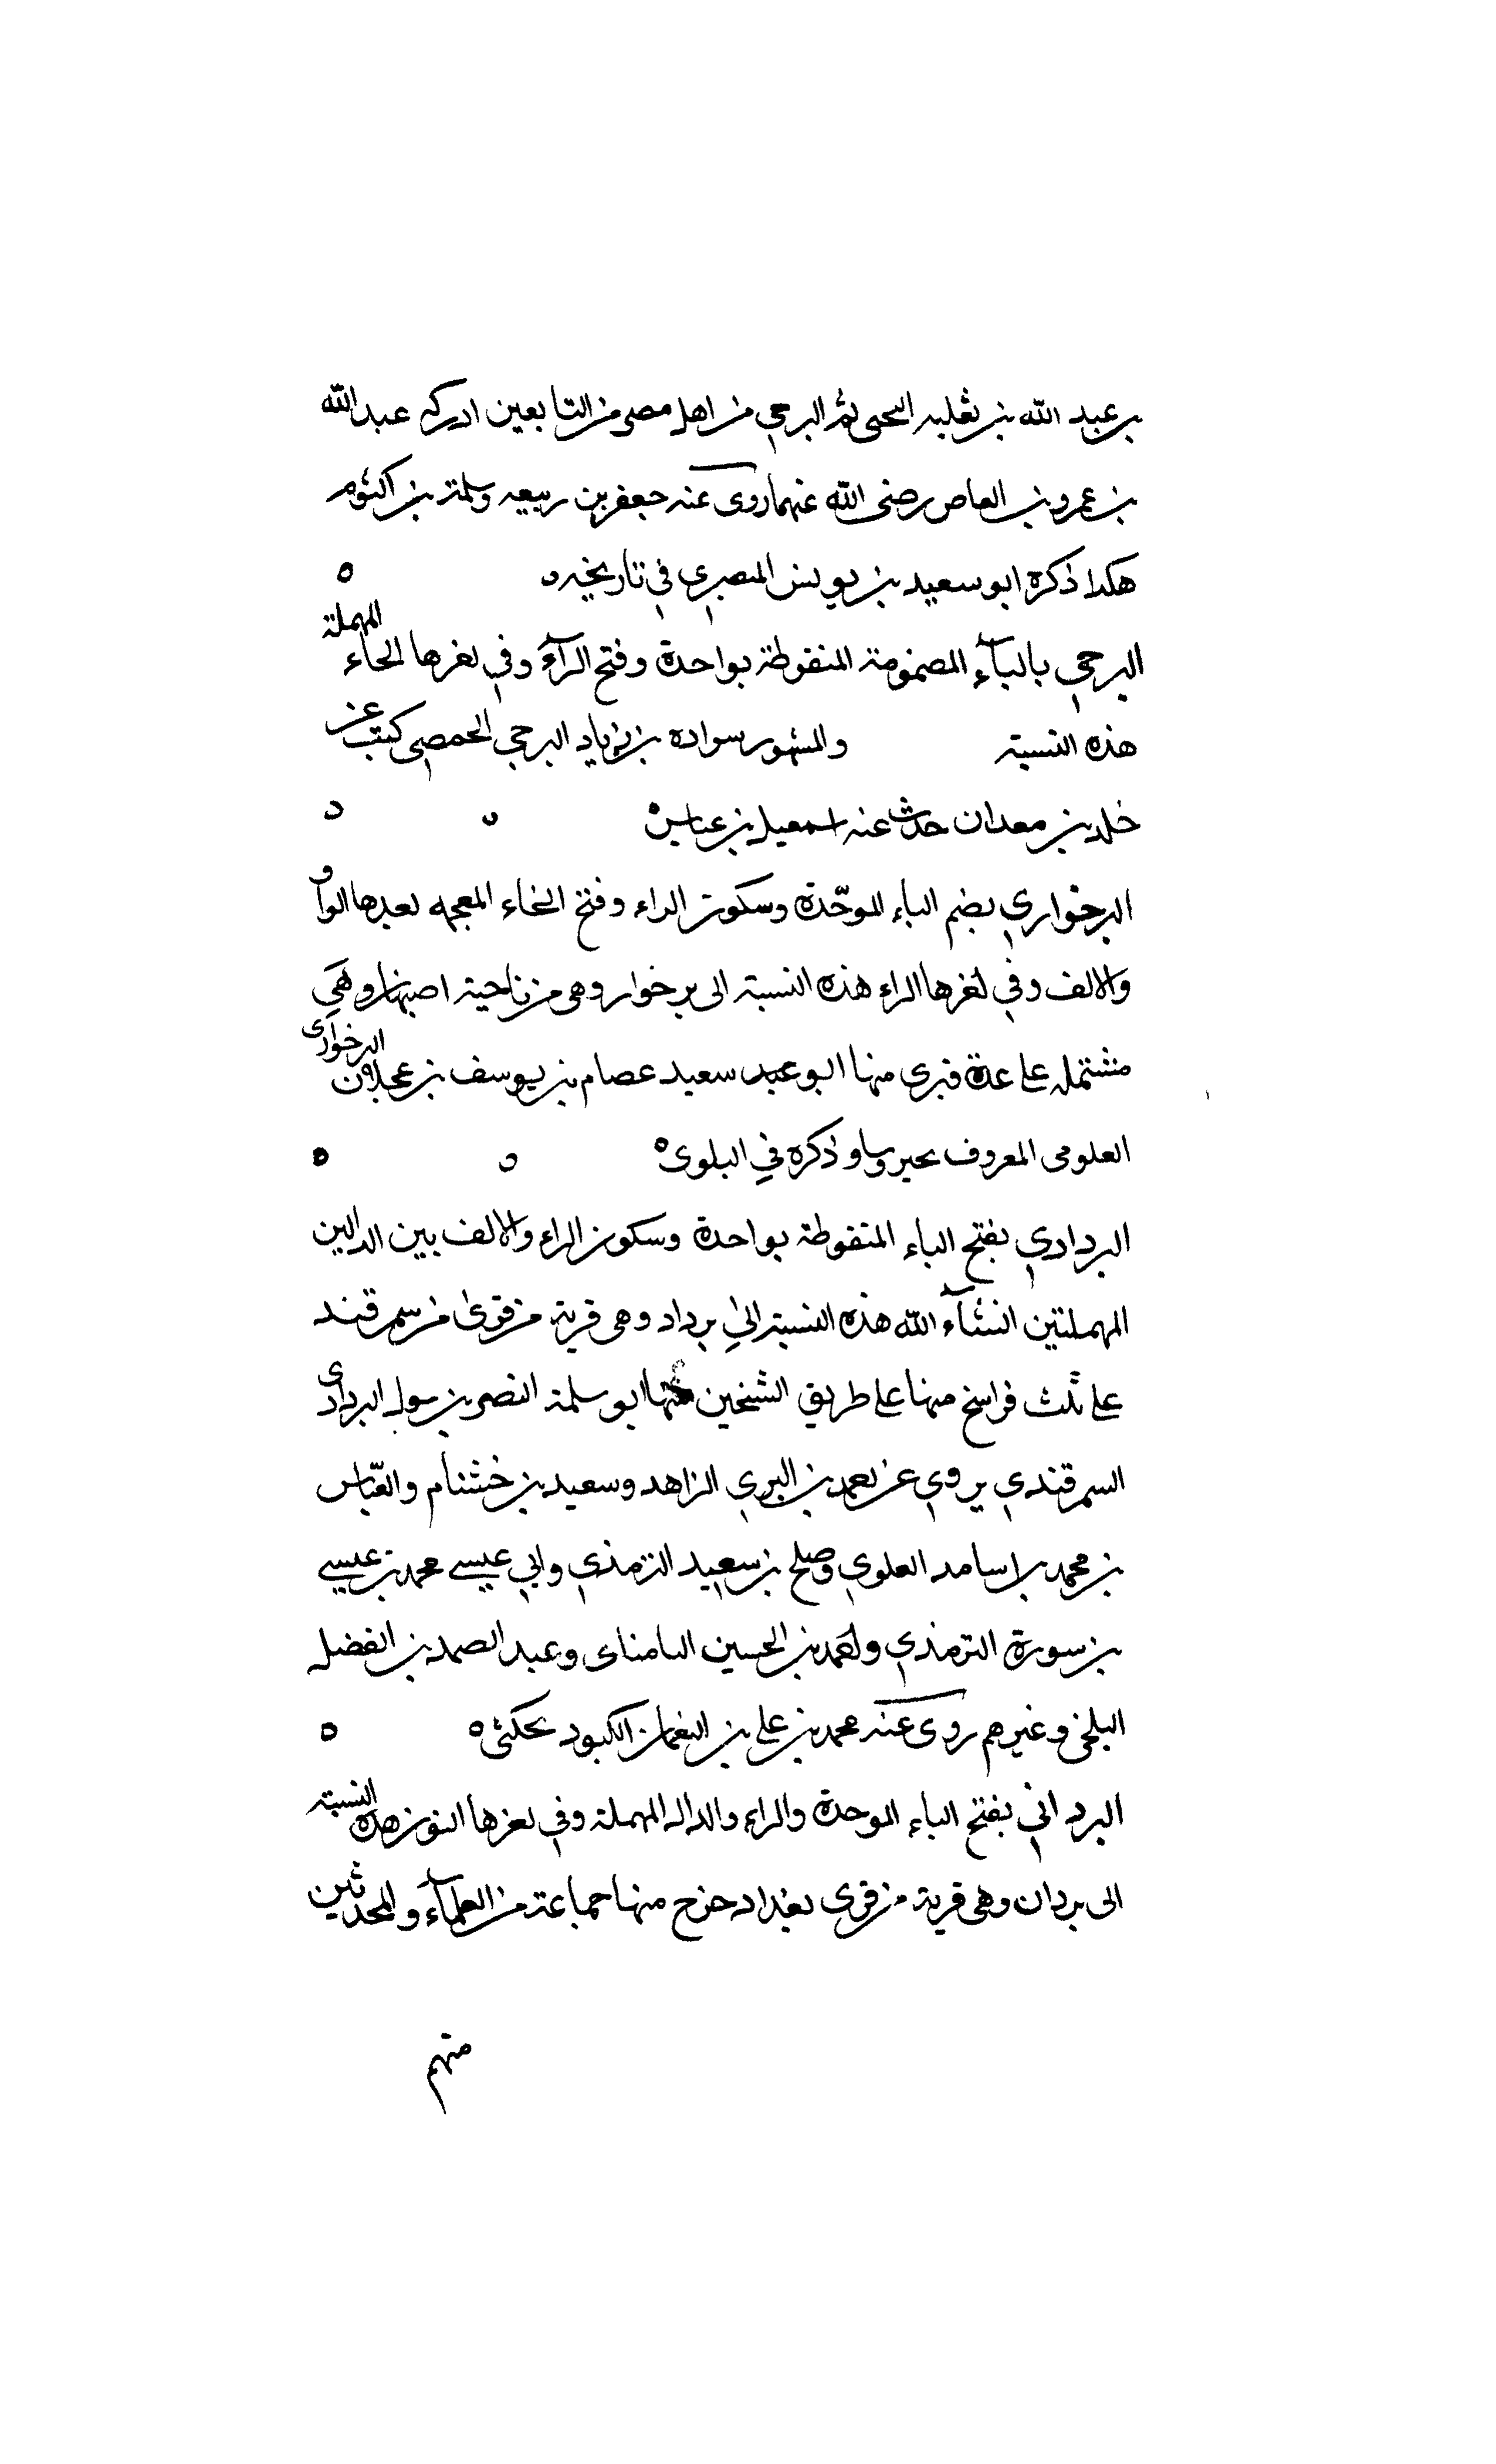 بن عبيد الله بن ثعلبه البرحى ثم البرحي من اهل مصر من التابعين ادرك عبد الله
بن عمرو بن العاص رضى الله عنهما روى عنه جعفر بن ربيعه وسلمة بن اكثوم
هكذا ذكره ابو سعيد بن يونس المصري في تاريخه
البرحي بالبآء المضمومة المنقوطة بواحدة وفتح الرآء وفي اخرها الحاء المهملة
هذه النسبة والمشهور سواده بن زياد البرحي الحمصي كتب عن
خلد بن معدان حدث عنه اسمعيل بن عياش
البرخواري بضم الباء الموحّدة وسكون الراء وفتح الخاء المعجمه بعدها الواو
والالف وفي اخرها الراء هذه النسبة الى برخوار وهى من ناحية اصبهان وهَي
مشتمله على عدة قرى منها ابو سعيد عصام بن يوسف بن عجلان البرخوارى
المعروف ذكره في البلوى
البردادي بفتح الباء المنقوطة بواحدة وسكون الراء والالف بين الدالين
المهملتين انشآء الله هذه النسبة الى برداد وهى قرية من قرى سمرقند
على ثلث فراسخ منها على طريق الشخين منها ابو سلمة النضر بن رسول البردادى
السمرقندي يروي عن احمد بن البري الزاهد وسعيد بن خشنام والعبّاس
بن محمد بن اسامه العلوي وصلح بن سعيد الترمذي وابي عيسى محمد بن عيسى
بن سورة الترمذي واحمد بن الحسين وعبد الصمد بن الفضل
البلخي وغيرهم روى عنه محمد بن على بن النعمان الكبود نجكثى
البرداني بفتح الباء الموحدة والراء والدال المهملة وفي اخرها النون هذه النسبة
الى بردان وهى قرية من قرى بغداد خرج منها جماعة من العلمآء والمحدثين
منهم